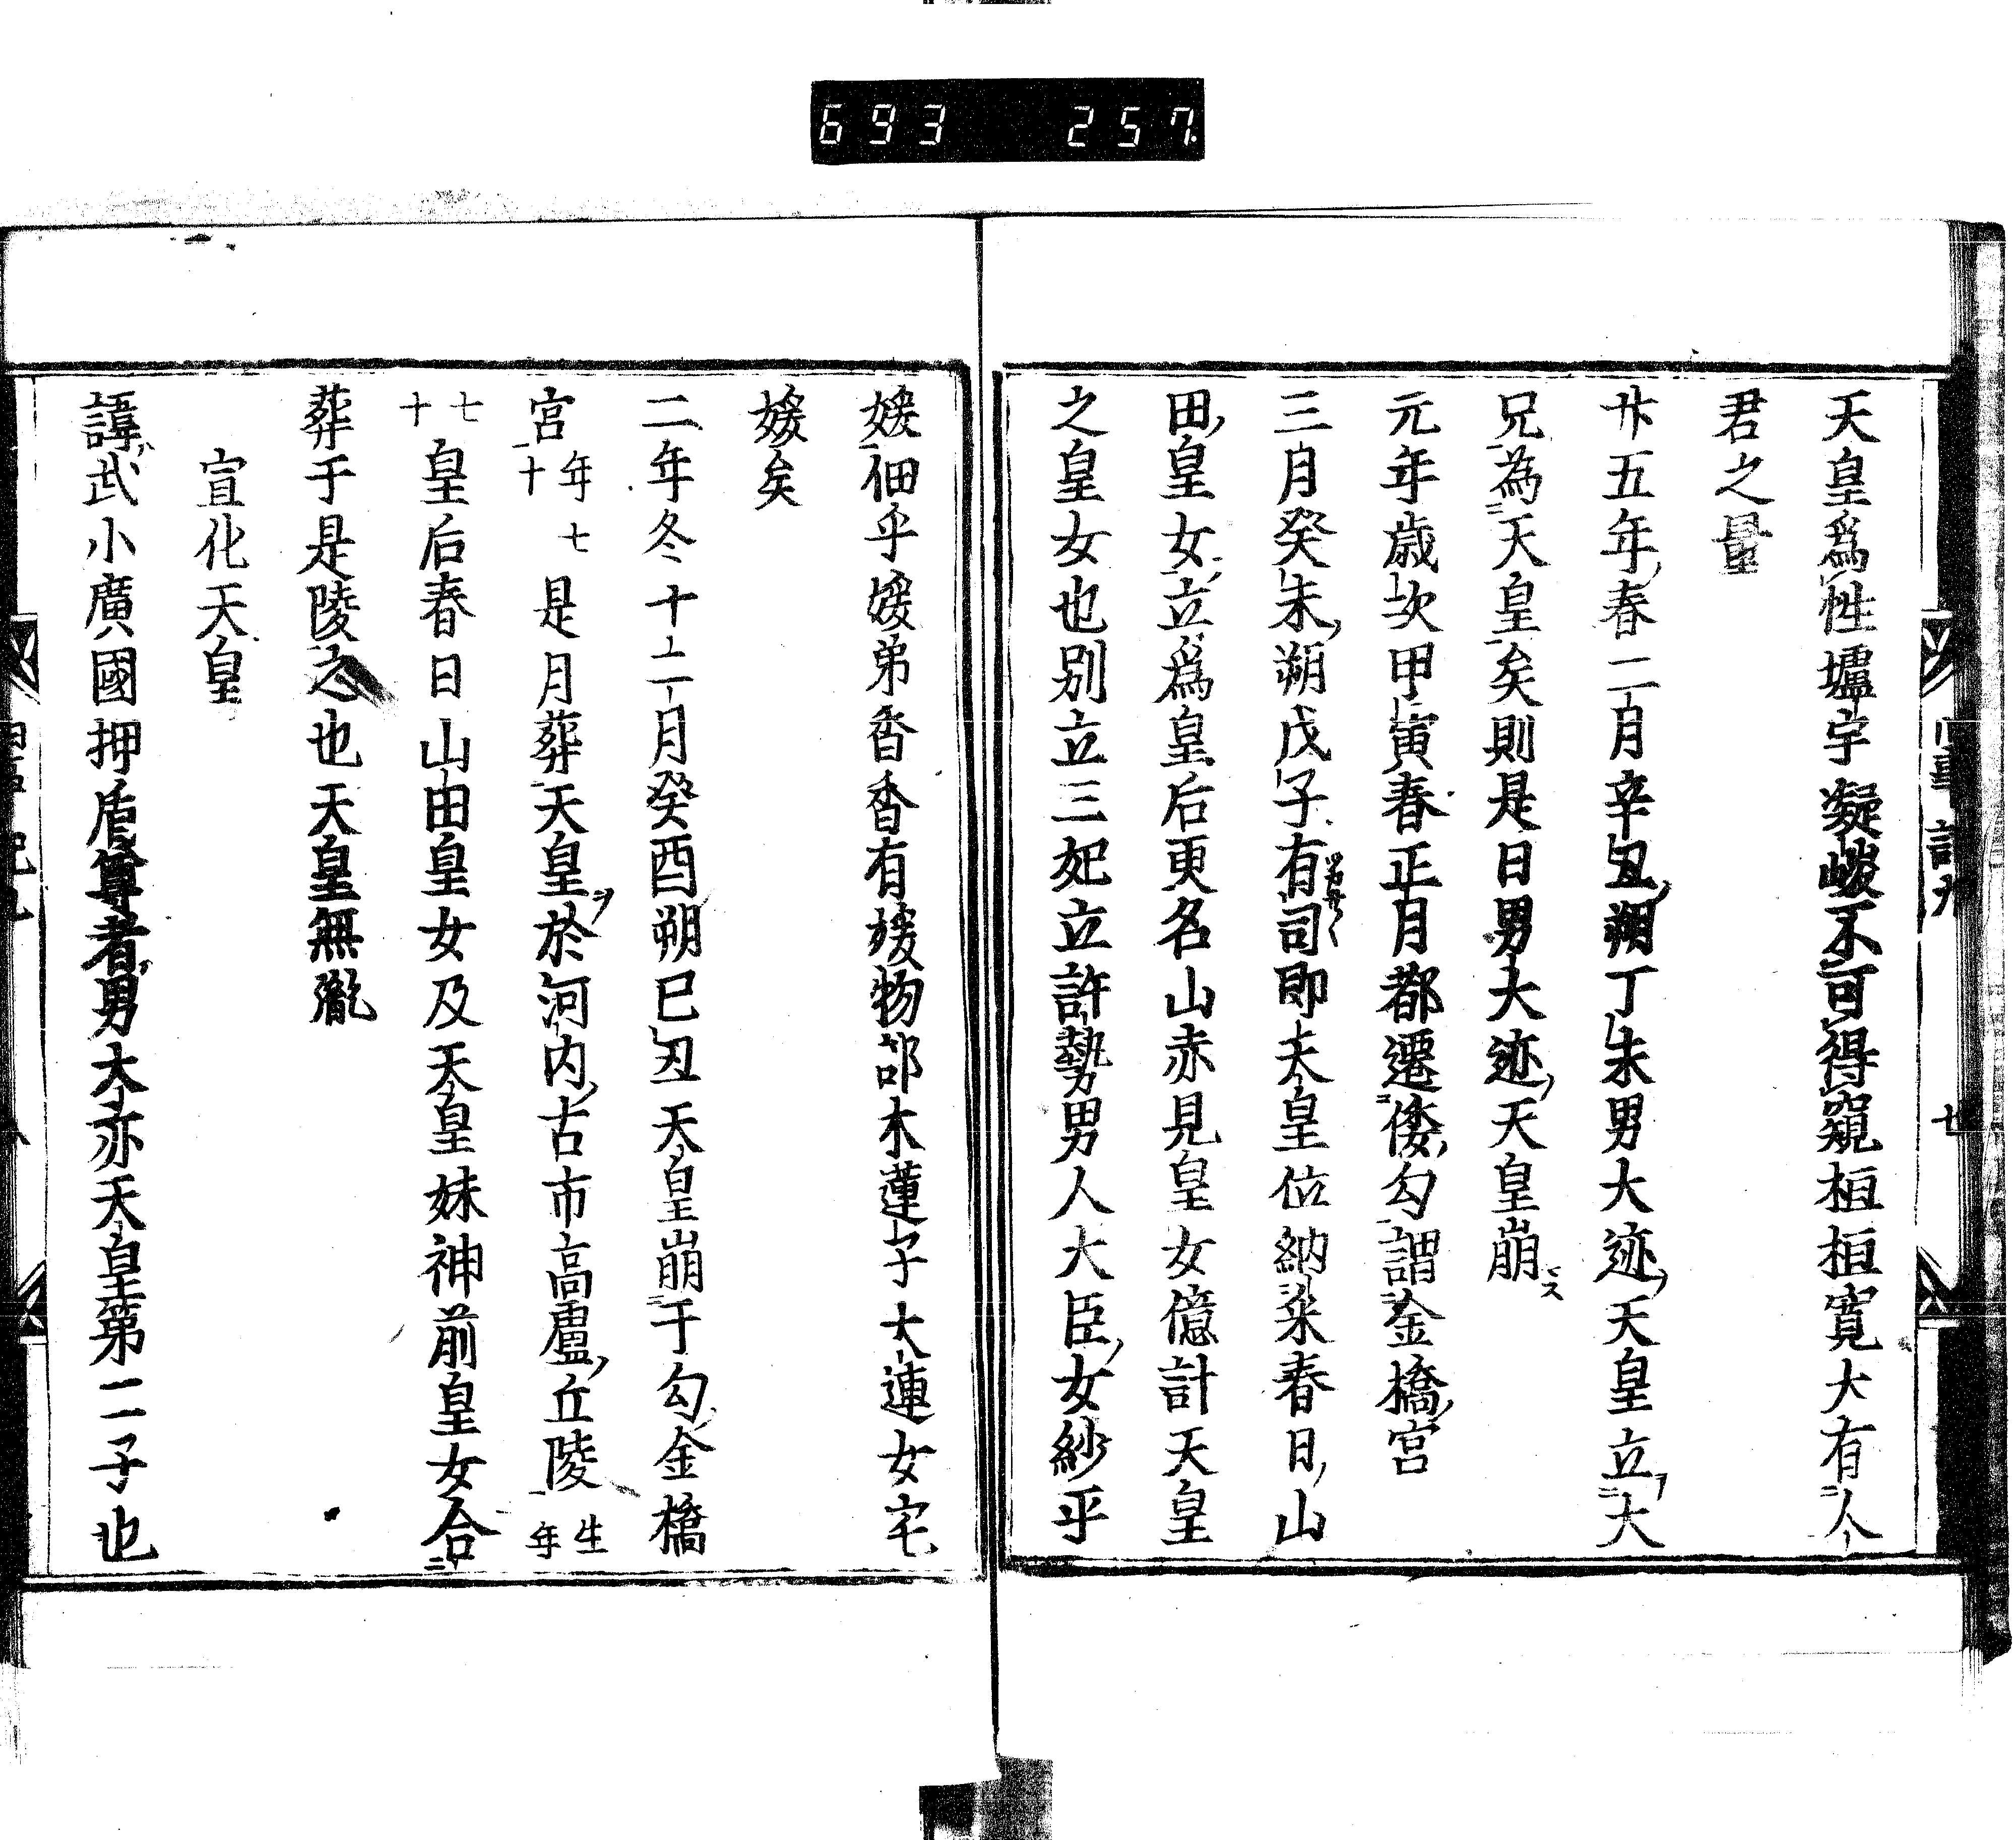 693 257
天皇爲性墟宇凝峻不可得窺桓桓寬大有人
君之量
廾五年春二月辛丑朔丁未男大迹天皇立大
兄為天皇矣則是日男大迹天皇崩
元年歳次甲寅春正月都遷倭勾謂金橋宮
三月癸未朔戊子有司即天皇位納采春日山
田皇女立爲皇后更名山赤見皇女億計天皇
之皇女也別立三妃立許勢男人大臣女紗乎
媛佃乎媛弟香香有媛物部木蓮子大連女宅
媛矣
二年冬十二月癸酉朔己丑天皇崩于勾金橋
宮年七十是月葬天皇於河内古市高盧丘陵生年
七十皇后春日山田皇女及天皇妹神前皇女合
葬于是陵之也天皇無胤
宣化天皇
諱武小廣國押盾尊者男大亦天皇第二子也